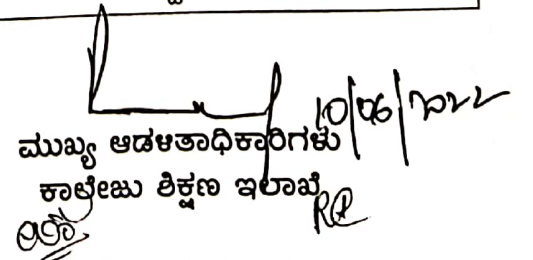 10/06/2022
ಮುಖ್ಯ ಆಡಳಿತಾಧಿಕಾರಿಗಳು
ಕಾಲೇಜು ಶಿಕ್ಷಣ ಇಲಾಖೆ